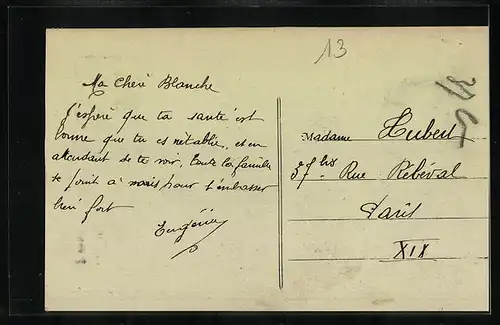 13
Ma Chère Blanche
J'espère que ta santé est
bonne que tu es rétablie, et en
attendant de te voir, toute la famille
se joint à nous pour t'embrasser
bien fort
Eugénie
Madame Hubert
37 bis Rue Rébeval
Paris
XIX